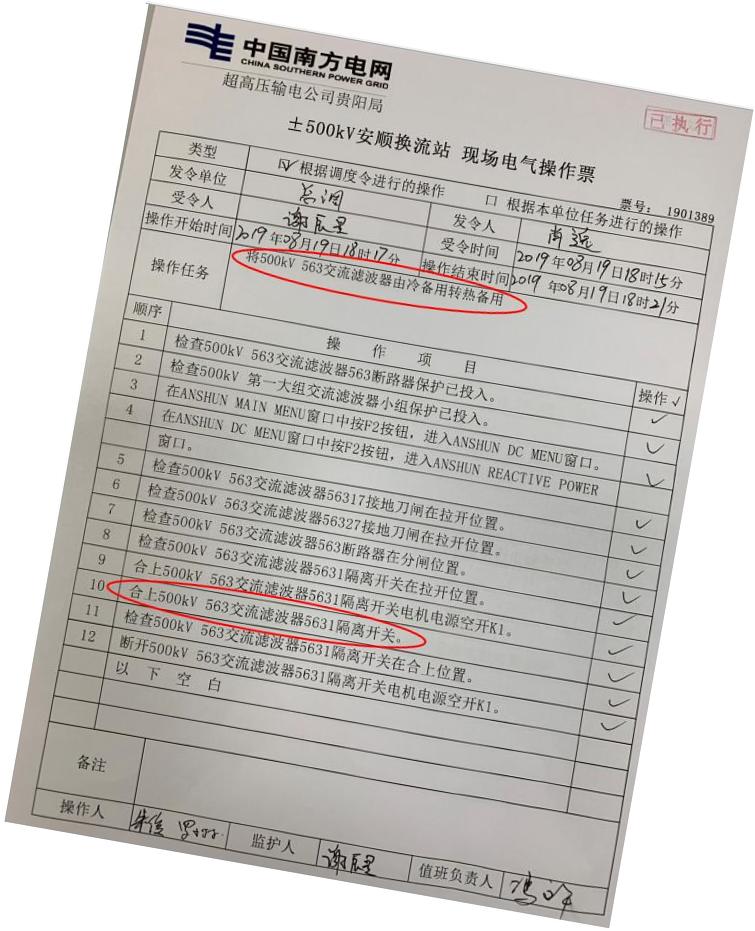 中国南方电网
CHINA SOUTHERN POWER GRID
超高压输电公司贵阳局
已执行
±500kV安顺换流站 现场电气操作票
票号： 1901389
类型 ☑ 根据调度令进行的操作 □ 根据本单位任务进行的操作
发令单位 总调 发令人
受令人 谢辰昱 受令时间 2019年08月19日18时15分
操作开始时间 2019年08月19日18时17分 操作结束时间 2019年08月19日18时21分
操作任务 将500kV 563交流滤波器由冷备用转热备用
顺序 操 作 项 目 操作√
1 检查500kV 563交流滤波器563断路器保护已投入。 ✓
2 检查500kV 第一大组交流滤波器小组保护已投入。 ✓
3 在ANSHUN MAIN MENU窗口中按F2按钮，进入ANSHUN DC MENU窗口。 ✓
4 在ANSHUN DC MENU窗口中按F2按钮，进入ANSHUN REACTIVE POWER
窗口。 ✓
5 检查500kV 563交流滤波器56317接地刀闸在拉开位置。 ✓
6 检查500kV 563交流滤波器56327接地刀闸在拉开位置。 ✓
7 检查500kV 563交流滤波器563断路器在分闸位置。 ✓
8 检查500kV 563交流滤波器5631隔离开关在拉开位置。 ✓
9 合上500kV 563交流滤波器5631隔离开关电机电源空开K1。 ✓
10 合上500kV 563交流滤波器5631隔离开关。 ✓
11 检查500kV 563交流滤波器5631隔离开关在合上位置。 ✓
12 断开500kV 563交流滤波器5631隔离开关电机电源空开K1。 ✓
以 下 空 白
备注
操作人 朱俊 监护人 谢辰昱 值班负责人